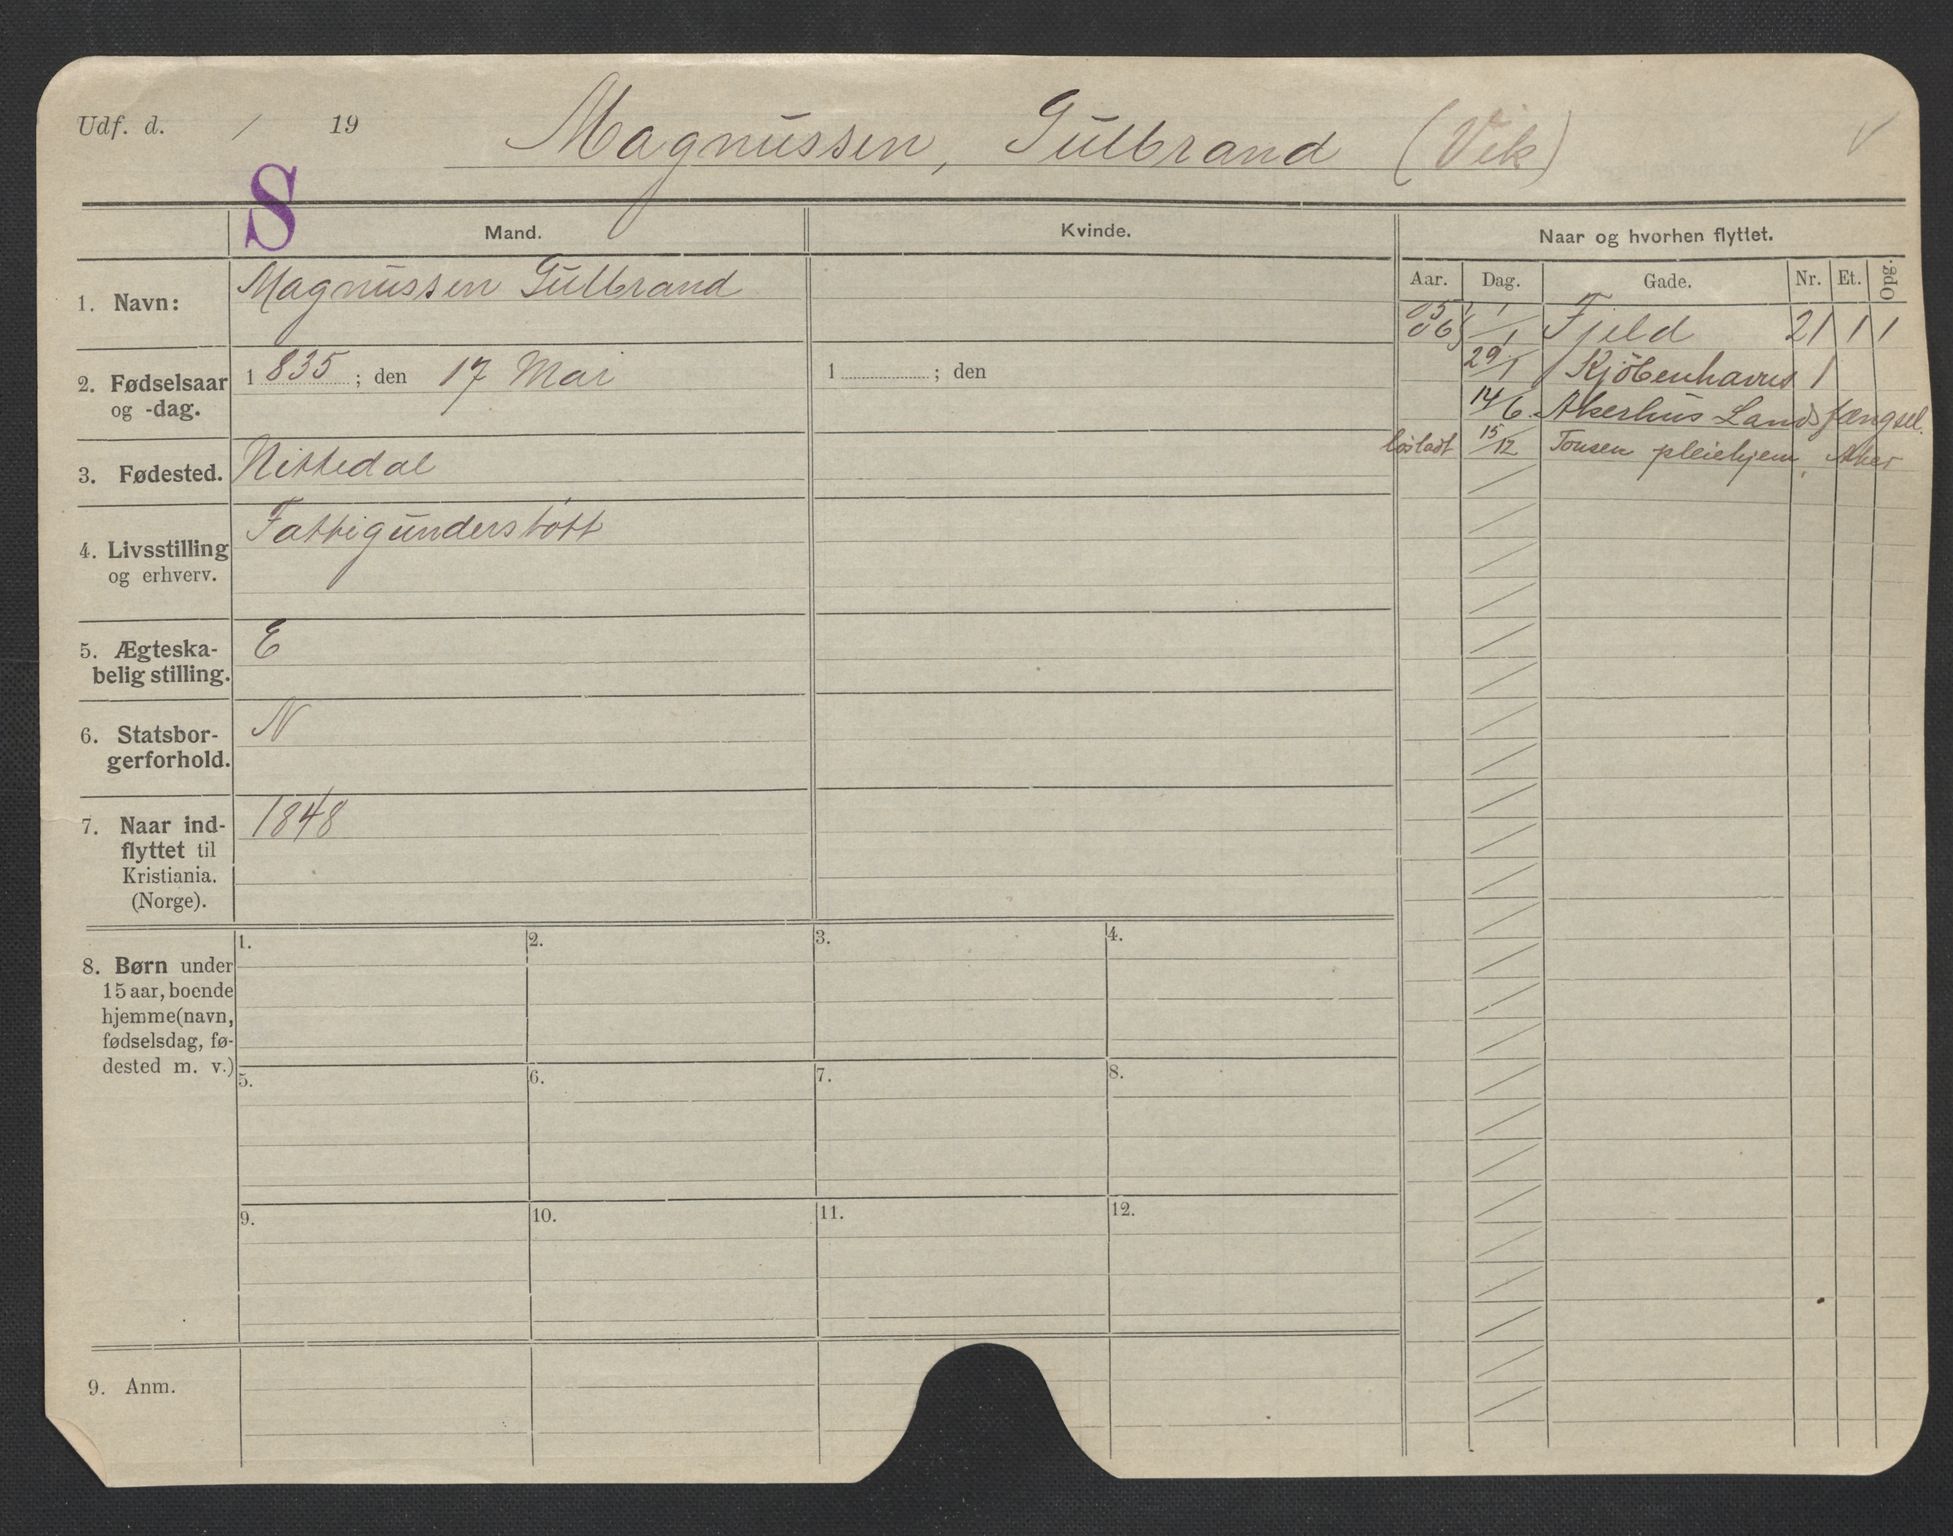 Udf. d. / 19
Magnussen, Gulbrand (Vik)
S
Mand.
Kvinde.
Naar og hvorhen flyttet.
Aar. Dag. Gade. Nr. Et. Opg.
1. Navn:
Magnussen Gulbrand
2. Fødselsaar
og -dag.
1 835 ; den 17 Mai
1 ; den
3. Fødested.
Nittedal
4. Livsstilling
og erhverv.
Fattigunderstött
5. Ægteska-
belig stilling.
E
6. Statsbor-
gerforhold.
N
7. Naar ind-
flyttet til
Kristiania.
(Norge).
1848
05
06 1/1 Fjeld 21 1 1
29/1 Kjöbenhavns 1
14/6. Akerhus Landsfængsel.
lösladt 15/12 Tonsen pleiehjem, Aker
8. Børn under
15 aar, boende
hjemme (navn,
fødselsdag, fø-
dested m. v.)
1. 2. 3. 4.
5. 6. 7. 8.
9. 10. 11. 12.
9. Anm.